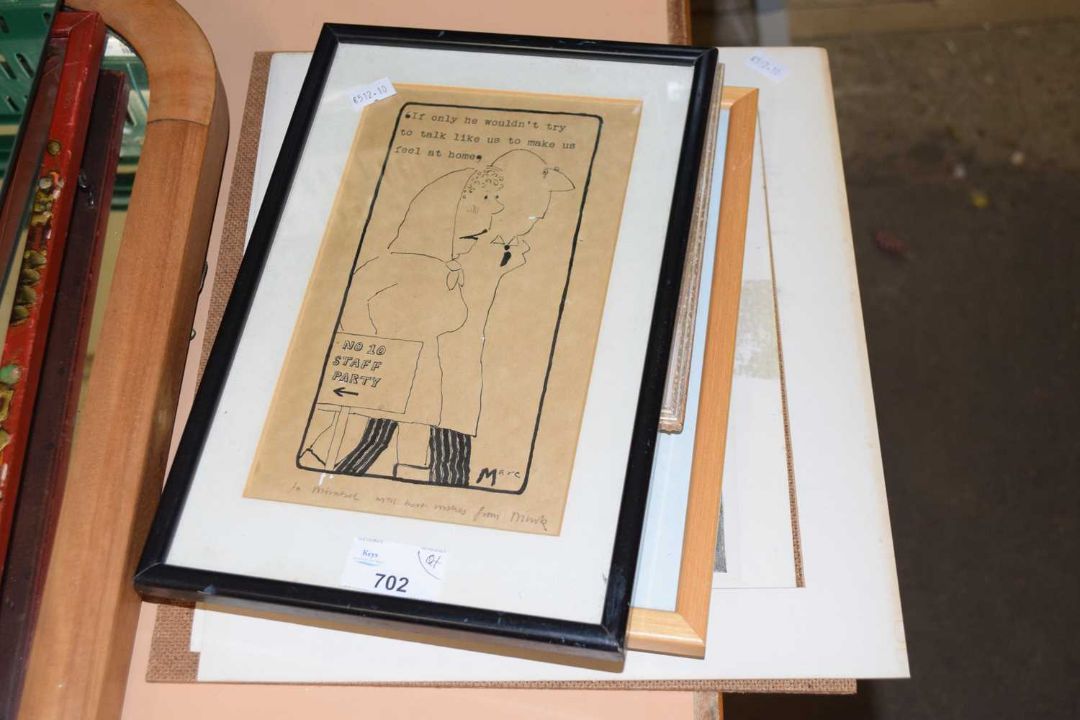 6512-10
6512-10
"If only he wouldn't try
to talk like us to make us
feel at home"
NO 10
STAFF
PARTY
←
Marc
To Mirabel with best wishes from Mark
Keys
702